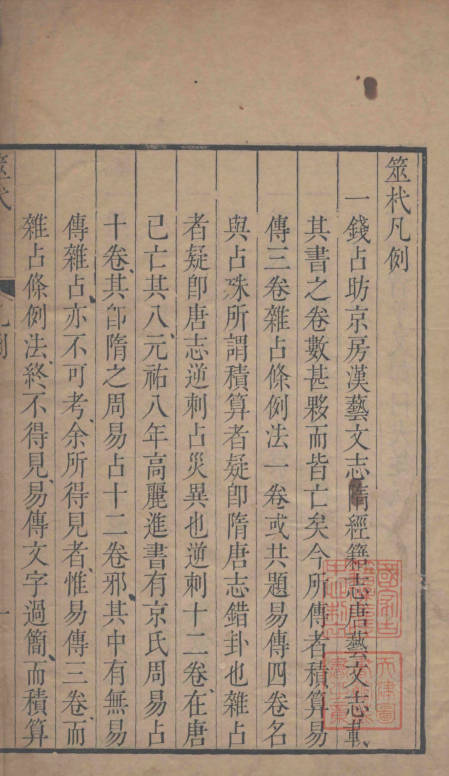 筮杙凡例
一錢占昉京房漢藝文志隋經籍志唐藝文志載
其書之卷數甚夥而皆亡矣今所傳者積算易
傳三卷雜占條例法一卷或共題易傳四卷名
與占殊所謂積算者疑卽隋唐志錯卦也雜占
者疑卽唐志逆刺占災異也逆刺十二卷在唐
已亡其八元祐八年高麗進書有京氏周易占
十卷、其卽隋之周易占十二卷邪、其中有無易
傳雜占、亦不可考、余所得見者、惟易傳三卷、而
雜占條例法、終不得見、易傳文字過簡、而積算
筮杙
凡例
一